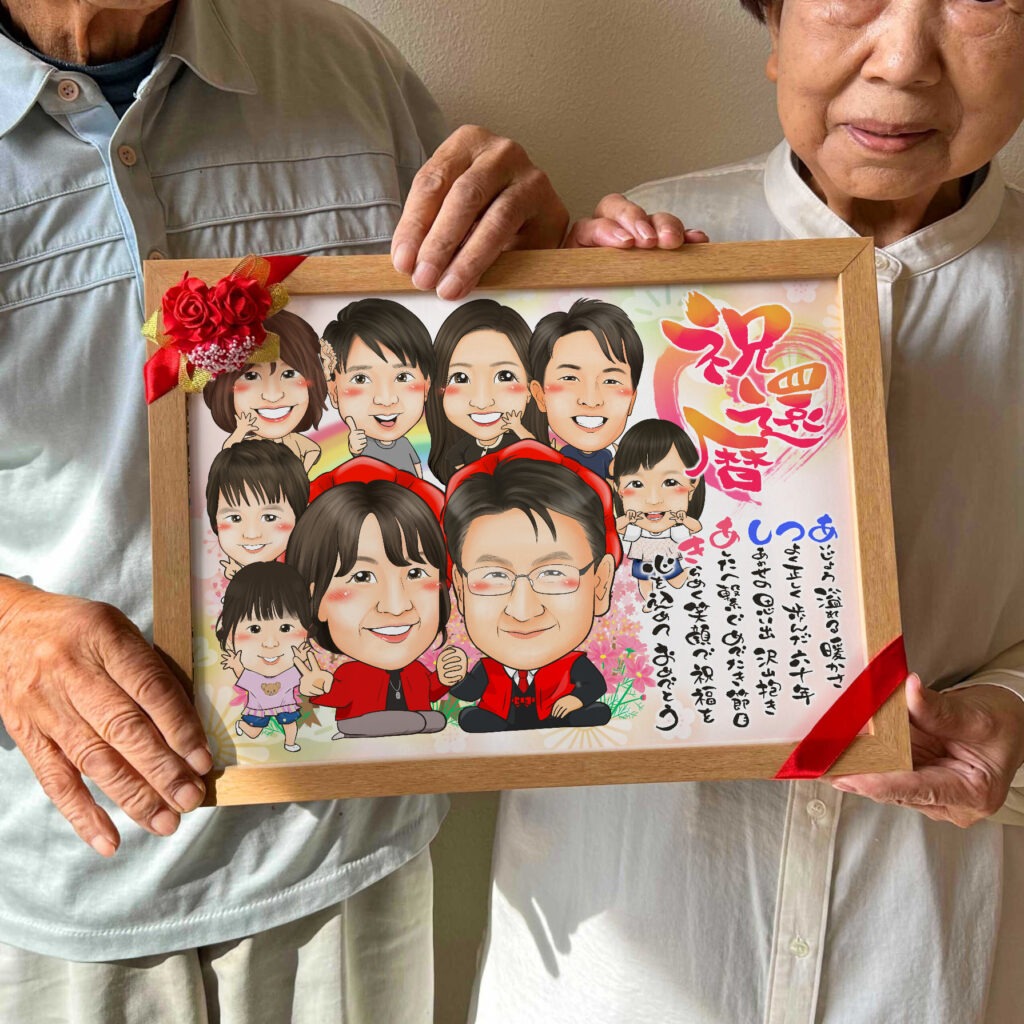 祝還暦
あいじょう 溢れる 暖かさ
つよく正しく 歩んだ 六十年
しあわせの 思い出 沢山抱き
あしたへ 繋ぐ めでたき 節目
きらめく 笑顔で 祝福を
心を込めて おめでとう